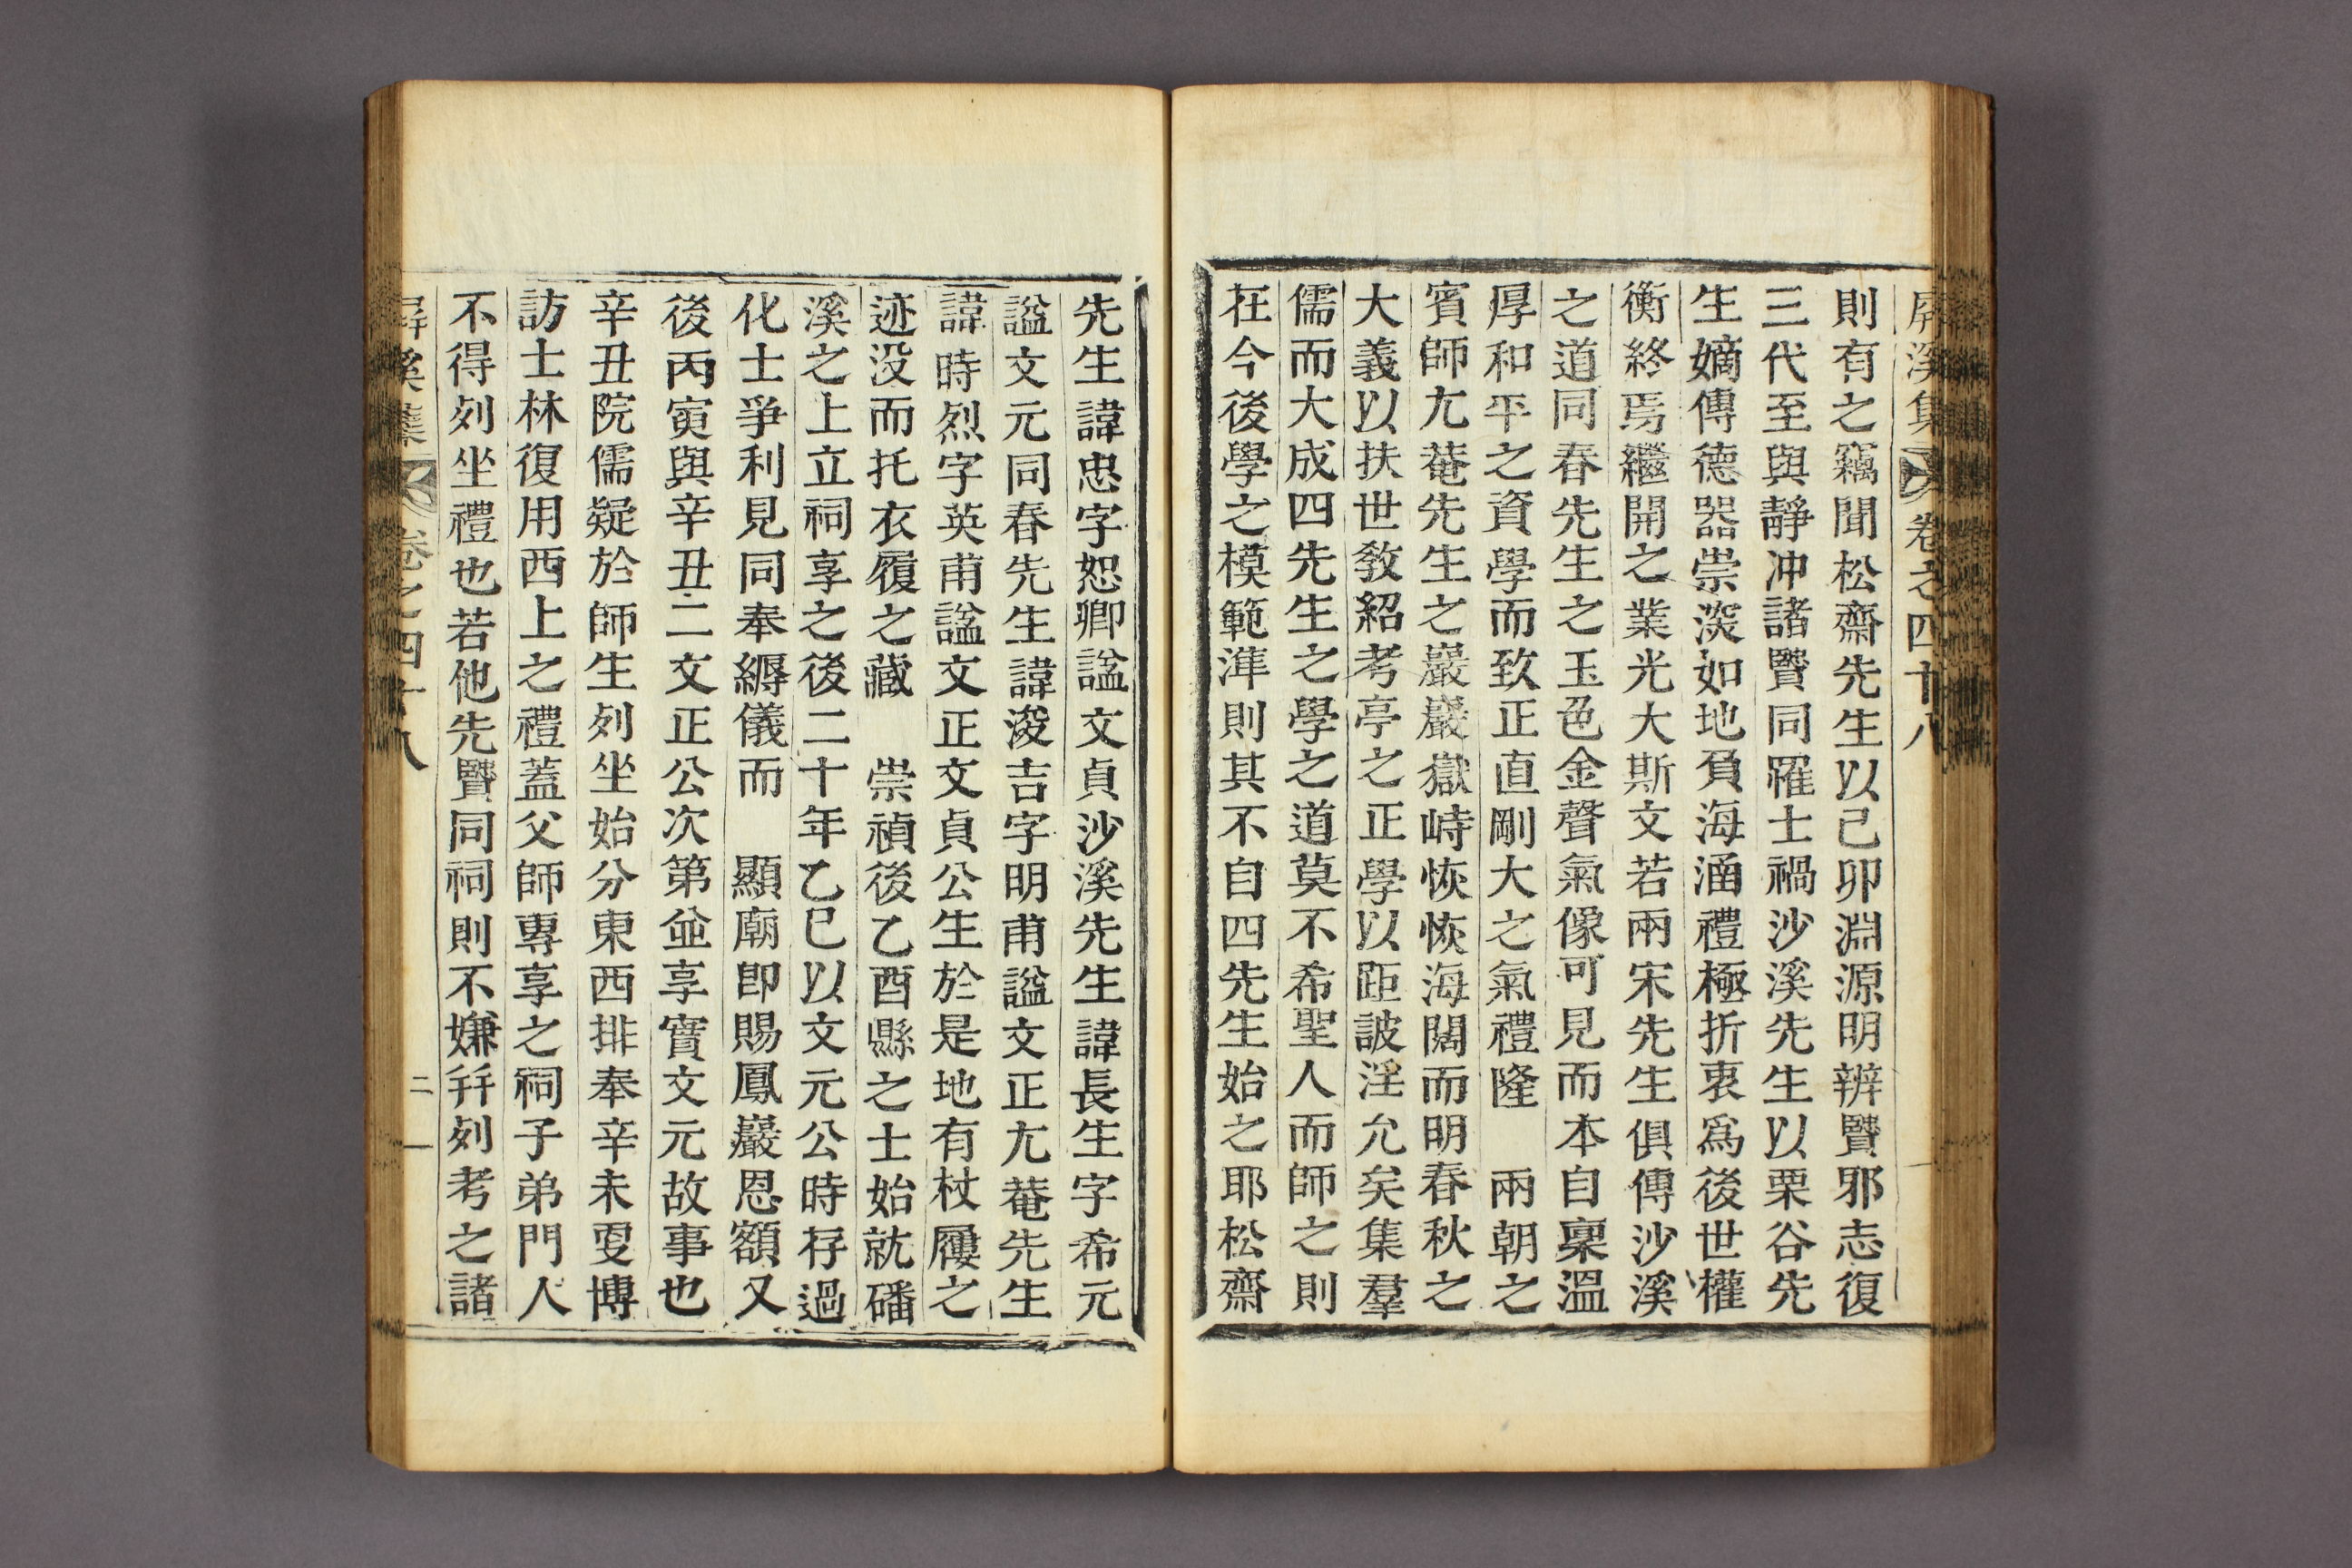 屛溪集 卷之四十八
則有之竊聞松齋先生以己卯淵源明辨賢邪志復
三代至與靜冲諸賢同罹士禍沙溪先生以栗谷先
生嫡傳德器崇深如地負海涵禮極折衷爲後世權
衡終焉繼開之業光大斯文若兩宋先生俱傳沙溪
之道同春先生之玉色金聲氣像可見而本自稟溫
厚和平之資學而致正直剛大之氣禮隆　兩朝之
賓師尤菴先生之巖巖嶽峙恢恢海闊而明春秋之
大義以扶世敎紹考亭之正學以距詖淫允矣集羣
儒而大成四先生之學之道莫不希聖人而師之則
在今後學之模範準則其不自四先生始之耶松齋
先生諱忠字恕卿諡文貞沙溪先生諱長生字希元
諡文元同春先生諱浚吉字明甫諡文正尤菴先生
諱時烈字英甫諡文正文貞公生於是地有杖屨之
迹没而托衣履之藏　崇禎後乙酉縣之士始就磻
溪之上立祠享之後二十年乙巳以文元公時存過
化士爭利見同奉縟儀而　顯廟卽賜鳳巖恩額又
後丙寅與辛丑二文正公次第並享實文元故事也
辛丑院儒疑於師生列坐始分東西排奉辛未更博
訪士林復用西上之禮蓋父師專享之祠子弟門人
不得列坐禮也若他先賢同祠則不嫌幷列考之諸
屛溪集 卷之四十八 二